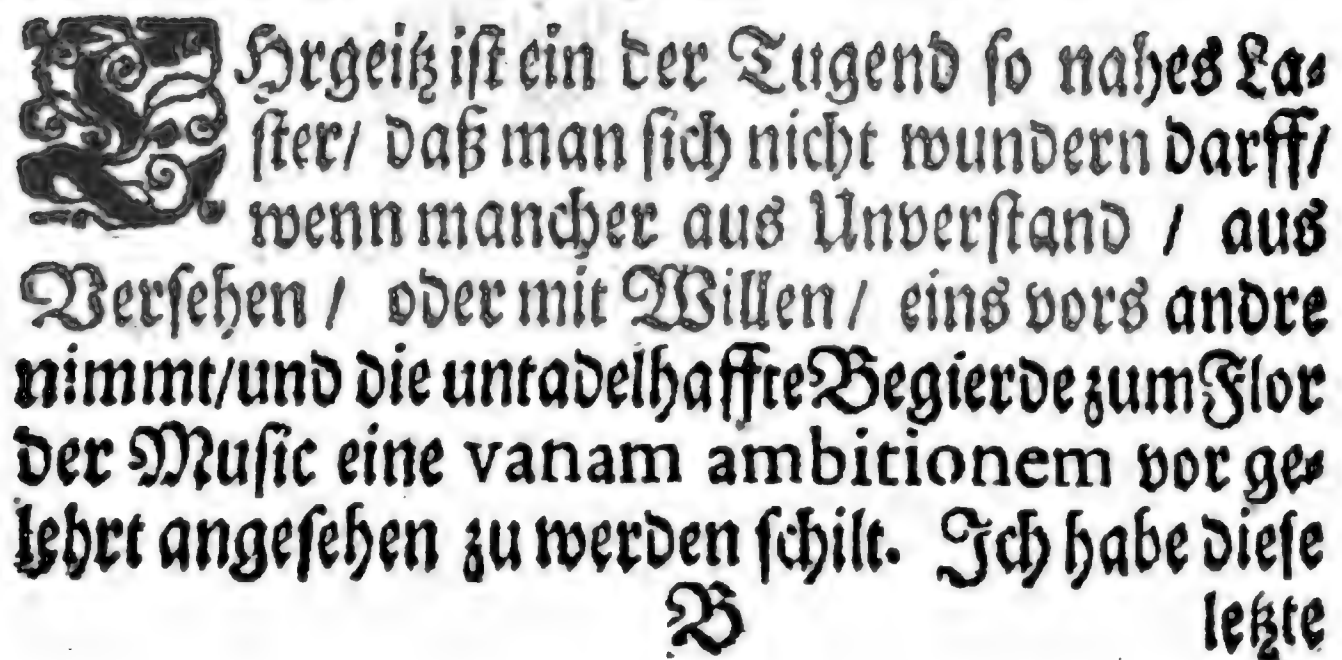 EHrgeitz ist ein der Tugend so nahes La-
ster/ daß man sich nicht wundern darff/
wenn mancher aus Unverstand / aus
Versehen / oder mit Willen / eins vors andre
nimmt/und die untadelhaffte Begierde zum Flor
der Music eine vanam ambitionem vor ge-
lehrt angesehen zu werden schilt. Ich habe diese
B letzte